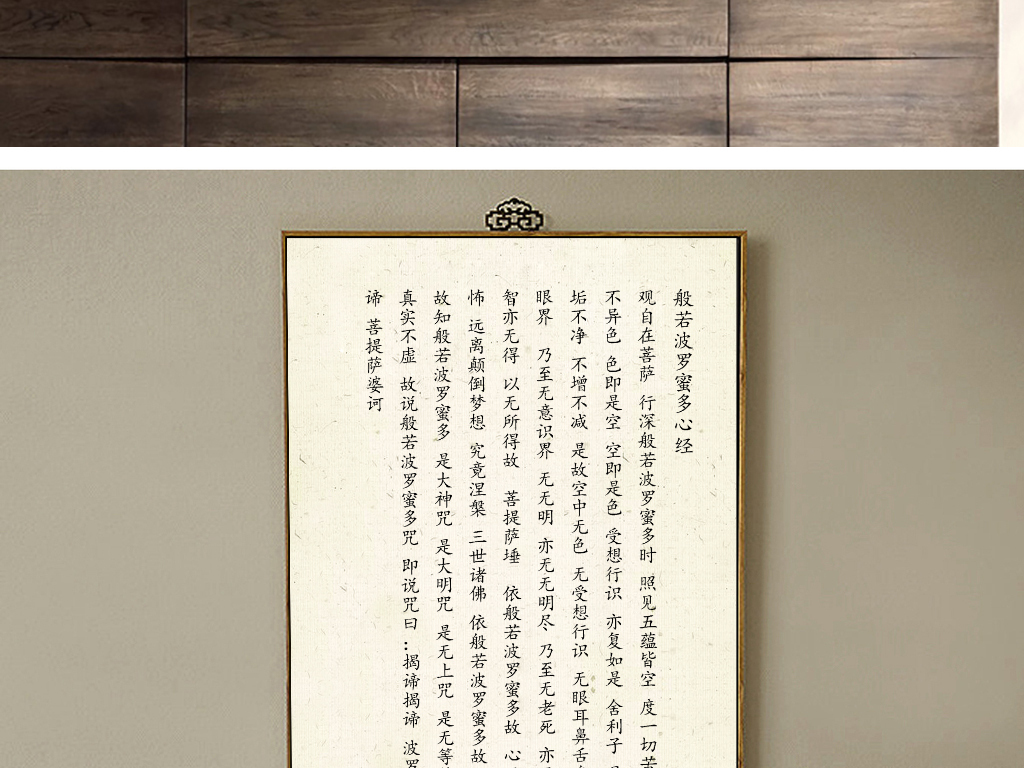 般若波罗蜜多心经
观自在菩萨 行深般若波罗蜜多时 照见五蕴皆空 度一切苦
不异色 色即是空 空即是色 受想行识 亦复如是 舍利子
垢不净 不增不减 是故空中无色 无受想行识 无眼耳鼻舌
眼界 乃至无意识界 无无明 亦无无明尽 乃至无老死 亦
智亦无得 以无所得故 菩提萨埵 依般若波罗蜜多故 心
怖 远离颠倒梦想 究竟涅槃 三世诸佛 依般若波罗蜜多故
故知般若波罗蜜多 是大神咒 是大明咒 是无上咒 是无等
真实不虚 故说般若波罗蜜多咒 即说咒曰：揭谛揭谛 波罗
谛 菩提萨婆诃